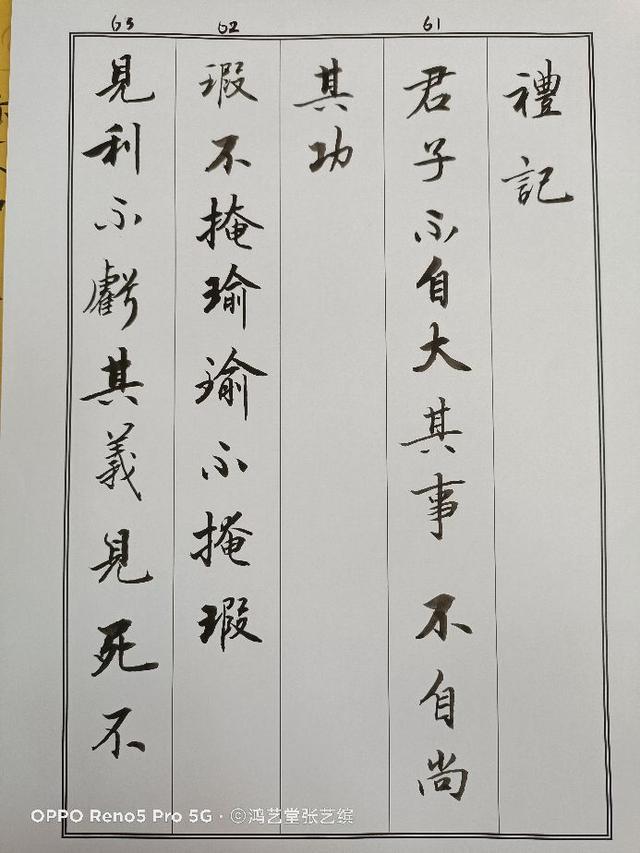 61
62
63
禮記
君子不自大其事不自尚
其功
瑕不掩瑜瑜不掩瑕
見利不虧其義見死不
OPPO Reno5 Pro 5G · ©鸿艺堂张艺缤